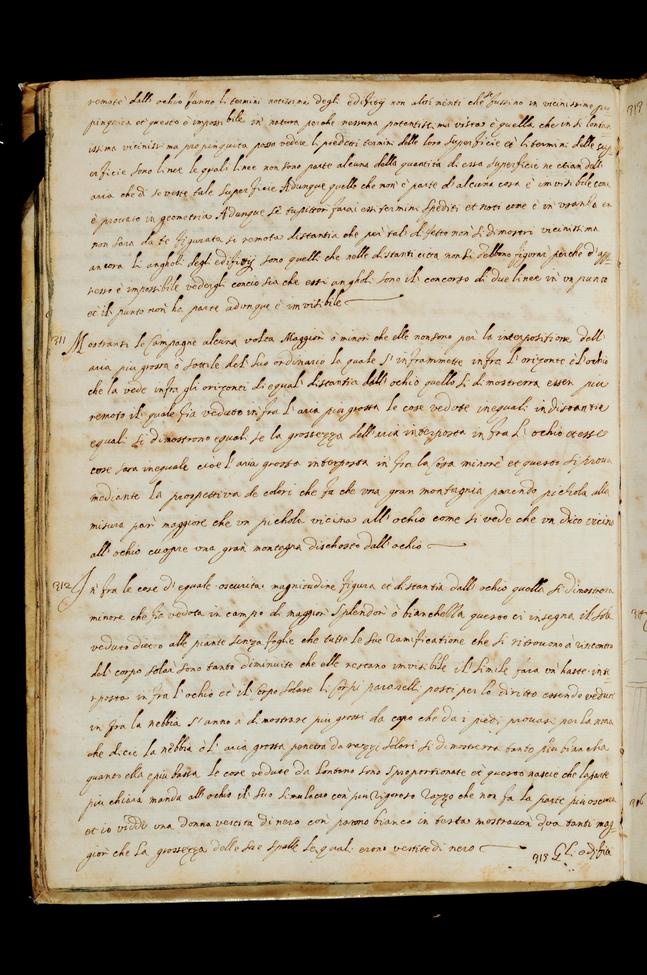 remote dall'ochio fanno li termini notissimi degli edifitij non altri menti che se fussino in vicinissime pro
pinquita et questo è impossibile in natura perche nessuna potentissima vista è quella che in si lonta
issima propinquita possa vedere li predetti termini delle loro superficie et li termini delle sup
erficie sono linee le quali linee non sono parte alcuna della quantità di essa superficie ne etian dell'
aria che di se veste tale superficie Adunque quello che non è parte di alcuna cosa è invisibile come
è provato in geometria Adunque se tu pittor farai essi termini spediti et noti come è in usanza
non sara da te figurata si remota distantia che per tal difetto non si dimostri vicinissima
ancora li angholi degli edifitij sono quelli che nelle distanti città non si debbono figurar perche d'app
resso è impossibile vedergli concio sia che essi angholi sono il concorso di due linee in un punto
et il punto non ha parte adunque è invisibile
311 Mostransi le Campagne alcuna volta Maggiori o minori che elle non sono per la interpositione dell'
aria piu grossa o sottile del suo ordinario la quale s'inframmette infra l'orizonte è l'ochio
che la vede infra gli orizonti di equal distantia dall'ochio quello si dimostrerra esser piu
remoto il quale fia veduto infra l'aria piu grossa le cose vedute inequali in distantie
equali si dimostrono equali se la grossezza dell'aria interposta infra l'ochio et esse
cose sara inequale cioè l'aria grossa interposta in fra la cosa minore et questo si prova
mediante la prospettiva de colori che fa che una gran montagnia parendo pichola alla
misura pari maggiore che un pichola vicina all'ochio come si vede che un dito vicino
all'ochio cuopre una gran montagna discosto dall'ochio
312 In fra le cose d'eguale oscurita magnitudine figura et distantia dall'ochio quella si dimostrera
minore che fie veduta in campo di maggior splendore o bianchezza questo ci insegna il sole
veduto dietro alle piante senza foglie che tutte le sue ramificatione che si ritrovono a riscontro
del corpo solar sono tanto diminuite che elle restano invisibile il simile fara un haste inte
rposta in fra l'ochio et il corpo solare li corpi paralelli posti per lo diritto essendo veduti
in fra la nebbia s'anno a dimostrare piu grossi da capo che da i piedi provasi per la nona
che dicie la nebbia è l'aria grossa penetra da razzi solari si dimosterra tanto piu biancha
quanto ella è piu bassa le cose vedute da lontano sono sproportionate et questo nascie che la parte
piu chiara manda all'ochio il suo simulacro con piu vigoroso razzo che non fa la parte piu oscura
et io viddi una donna vestita di nero con panno bianco in testa mostraven dua tanti mag
gior che la grossezza delle sue spalle le quali erono vestite di nero
313 Gli edifitia